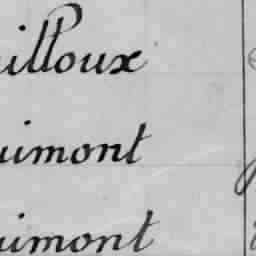 uilloux
uimont
uimont